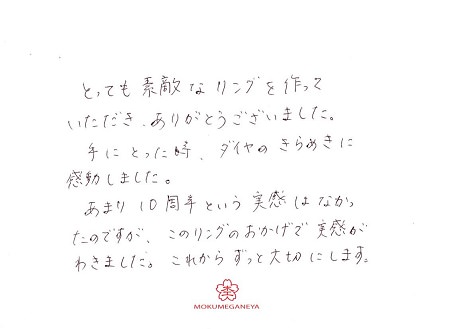 とっても素敵なリングを作って
いただき、ありがとうございました。
手にとった時、ダイヤのきらめきに
感動しました。
あまり10周年という実感はなかっ
たのですが、このリングのおかげで実感が
わきました。これからずっと大切にします。
MOKUMEGANEYA